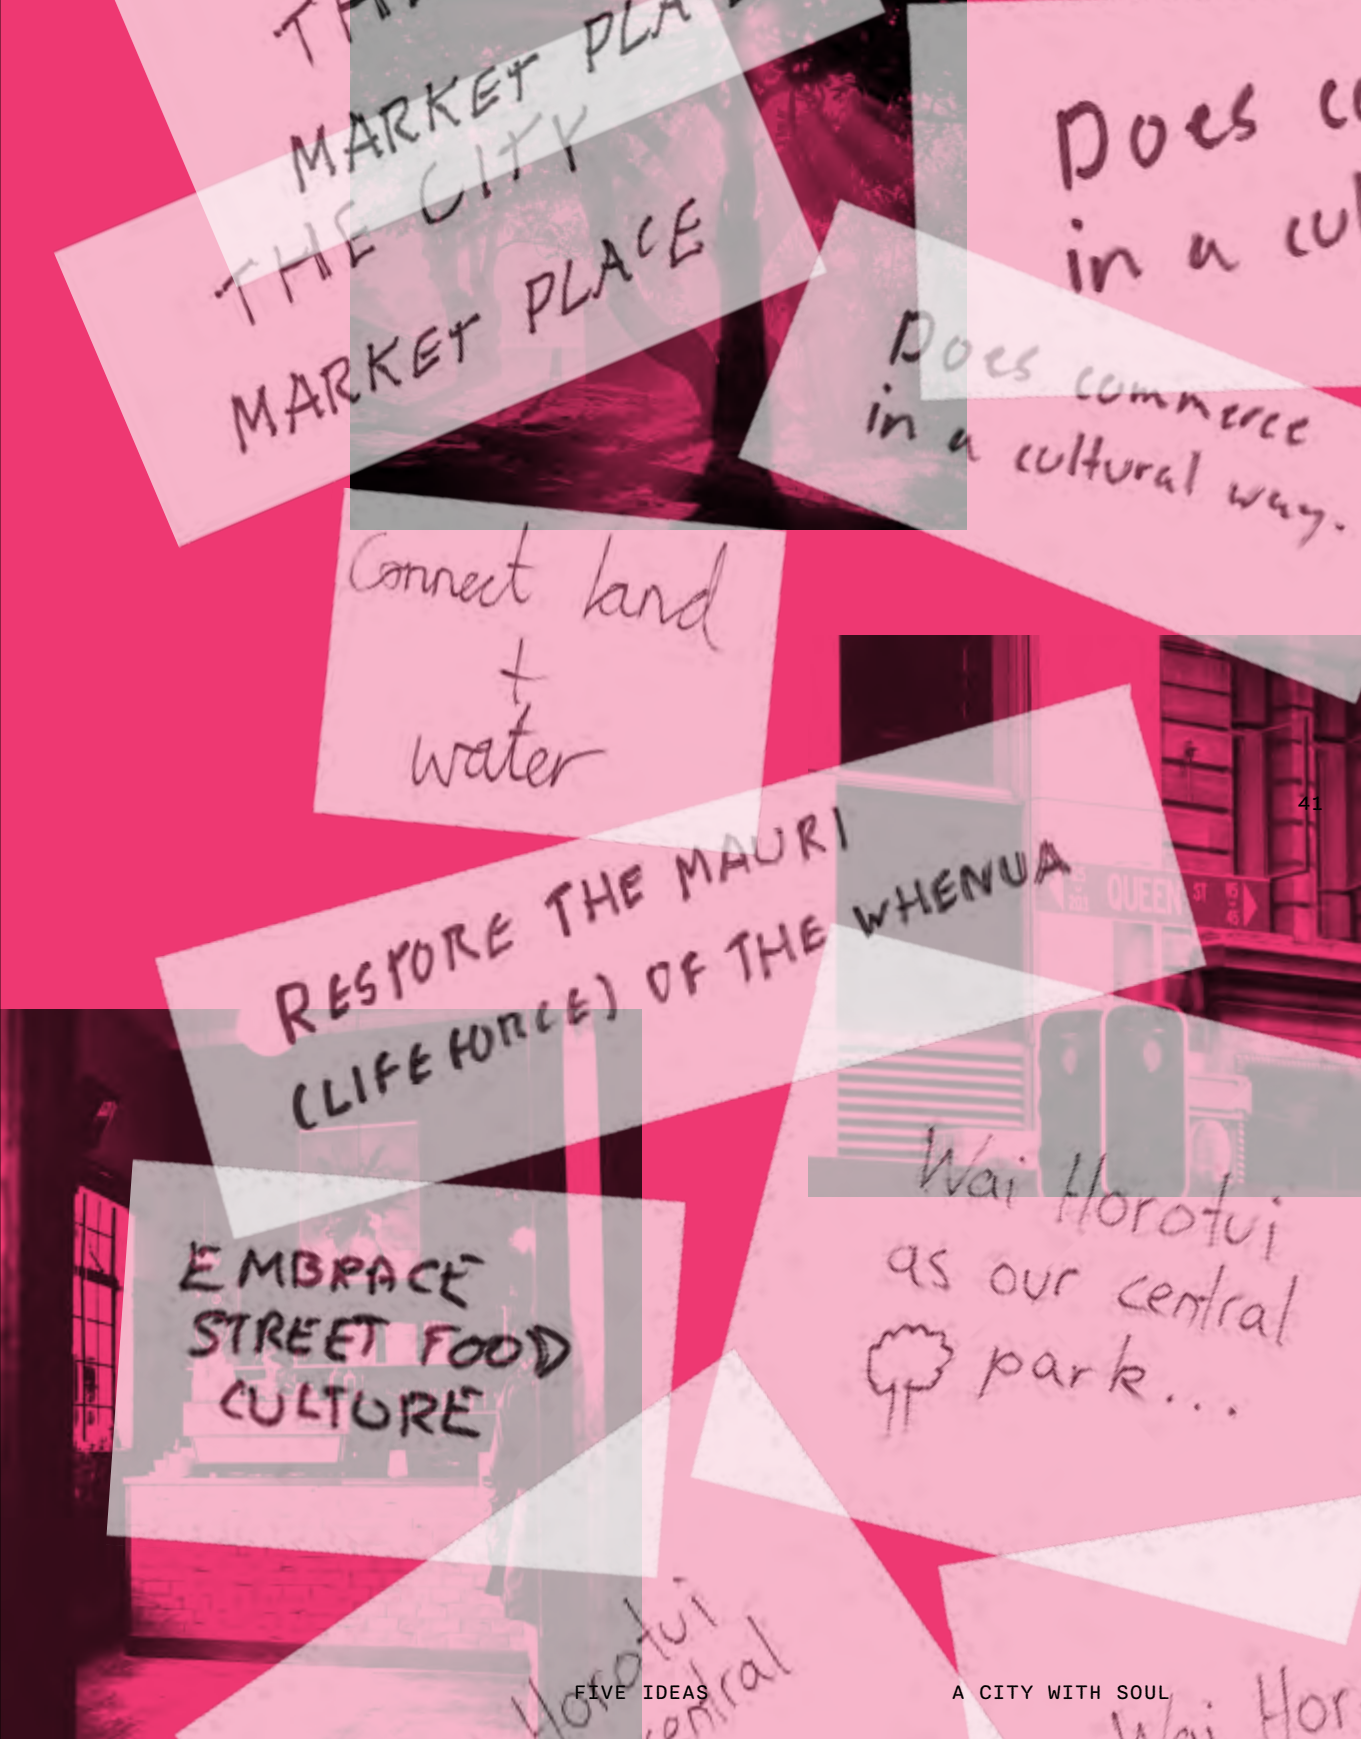 MARKET PLA
THE CITY
MARKET PLACE
Does
in a
Does commerce
in a cultural way.
Connect land
+
water
41
RESTORE THE MAURI
(LIFEFORCE) OF THE WHENUA
QUEEN ST
Wai Horotui
as our central
park....
EMBRACE
STREET FOOD
CULTURE
Horotui
central
Wai Hor
FIVE IDEAS
A CITY WITH SOUL